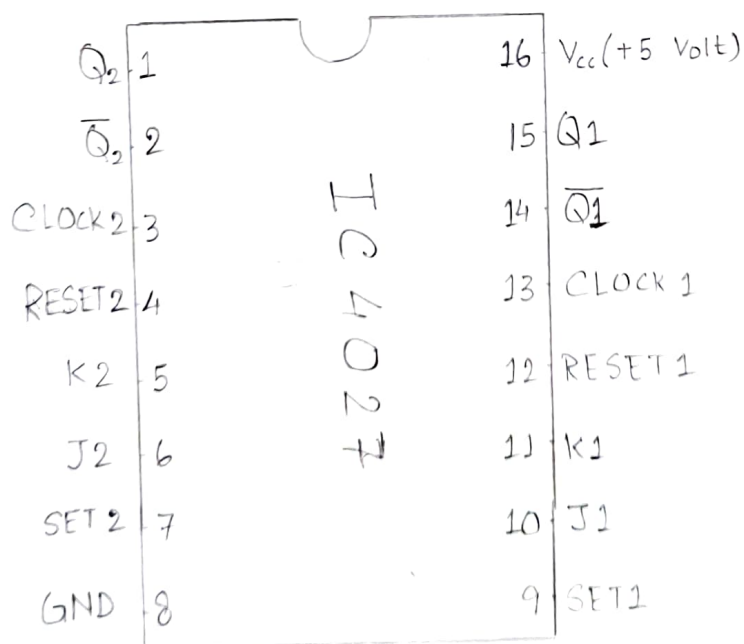 Q₂ 1
Q̅₂ 2
CLOCK2 3
RESET2 4
K2 5
J2 6
SET 2 7
GND 8
IC 4027
16 Vcc(+5 Volt)
15 Q1
14 Q̅1̅
13 CLOCK 1
12 RESET 1
11 K1
10 J1
9 SET1